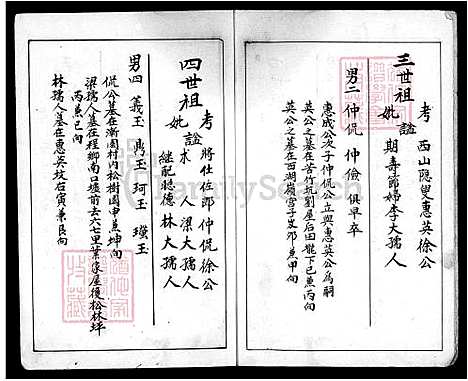 三世祖
考 西山隱叟惠英徐公
妣 謚 期壽節婦李大孺人
男二 仲侃 仲儉 俱早卒
惠成公次子仲侃公立與惠英公為嗣
英公之墓在苦竹坑劉屋后田龍下巳兼丙向
英公之墓在西湖嶺宮子癸邜兼甲向
四世祖
考 將仕佐郎仲侃徐公
妣 謚 求 人梁大孺人
繼配聰德林大孺人
男四 義玉 禹玉 珂玉 璞玉
侃公墓在漸園村内松樹園申兼坤向
梁孺人墓在程鄉南口墟前去六七里葉家屋後松林坪
丙兼巳向
林孺人墓在惠英坟右寅兼艮向
FamilySearch